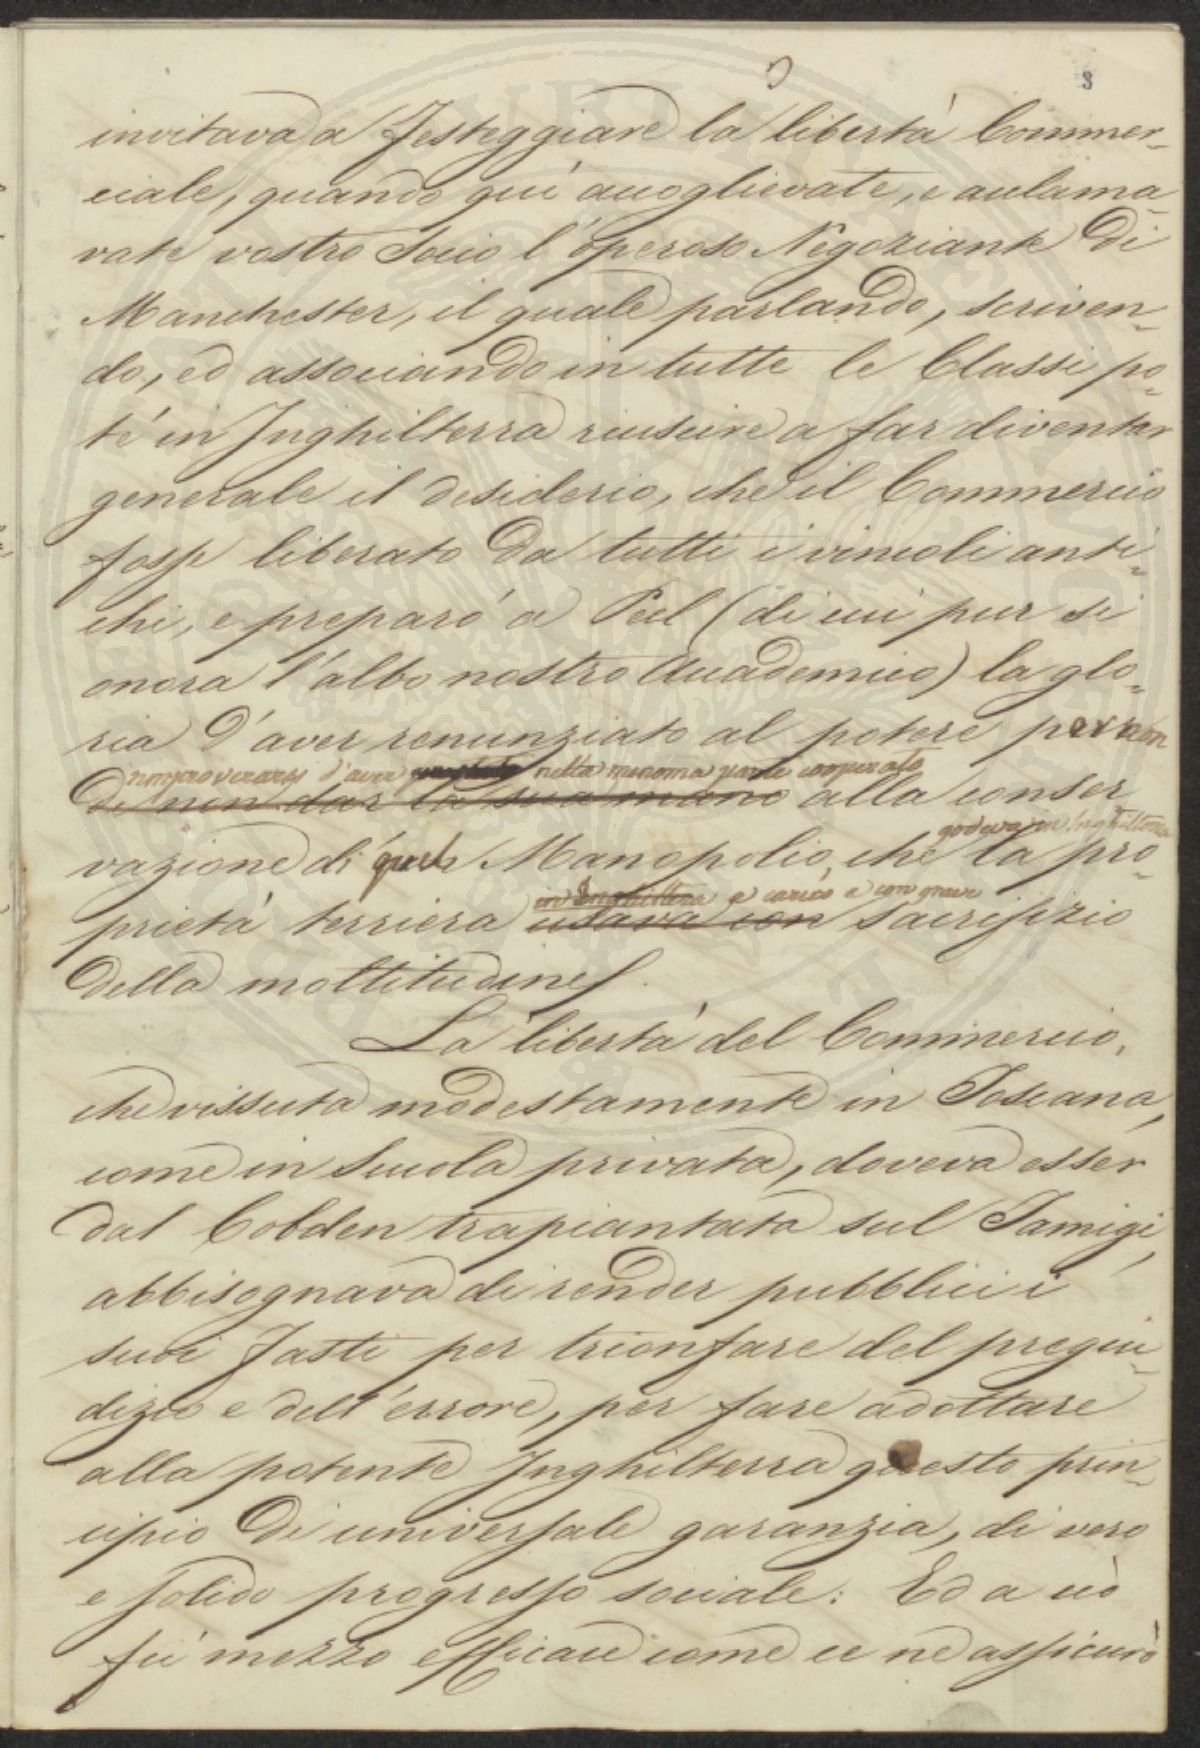 3
invitava a festeggiare la libertà Commer=
ciale, quando quì accoglievate, e acclama=
vate vostro Socio l'operoso Negoziante Di
Manchester, il quale parlando, scriven=
do, ed associando in tutte le Classi po=
té in Inghilterra riuscire a far diventar
generale il desiderio, che il Commercio
fosse liberato da tutti i vincoli anti=
chi, e preparò a Peel (di cui pur si
onora l'albo nostro Accademico) la glo=
ria d'aver renunziato al potere per non
rimproverarsi d'aver nella menoma parte cooperato
Di non dar la sua mano alla conser
vazione di quel Monopolio, che la pro=
godeva in Inghilterra
prietà terriera usava con sacrifizio
in Inghilterra a carico e con grave
della moltitudine.
La libertà del Commercio,
che vissuta modestamente in Toscana,
come in Scuola privata, doveva esser
dal Cobden trapiantata sul Tamigi,
abbisognava di render pubblici i
suoi fasti per trionfare del pregiu=
dizio e dell'errore, per fare adottare
alla potente Inghilterra questo prin=
cipio Di universale garanzia, di vero
e solido progresso sociale: Ed a ciò
fù mezzo efficace come ce ne assicurò